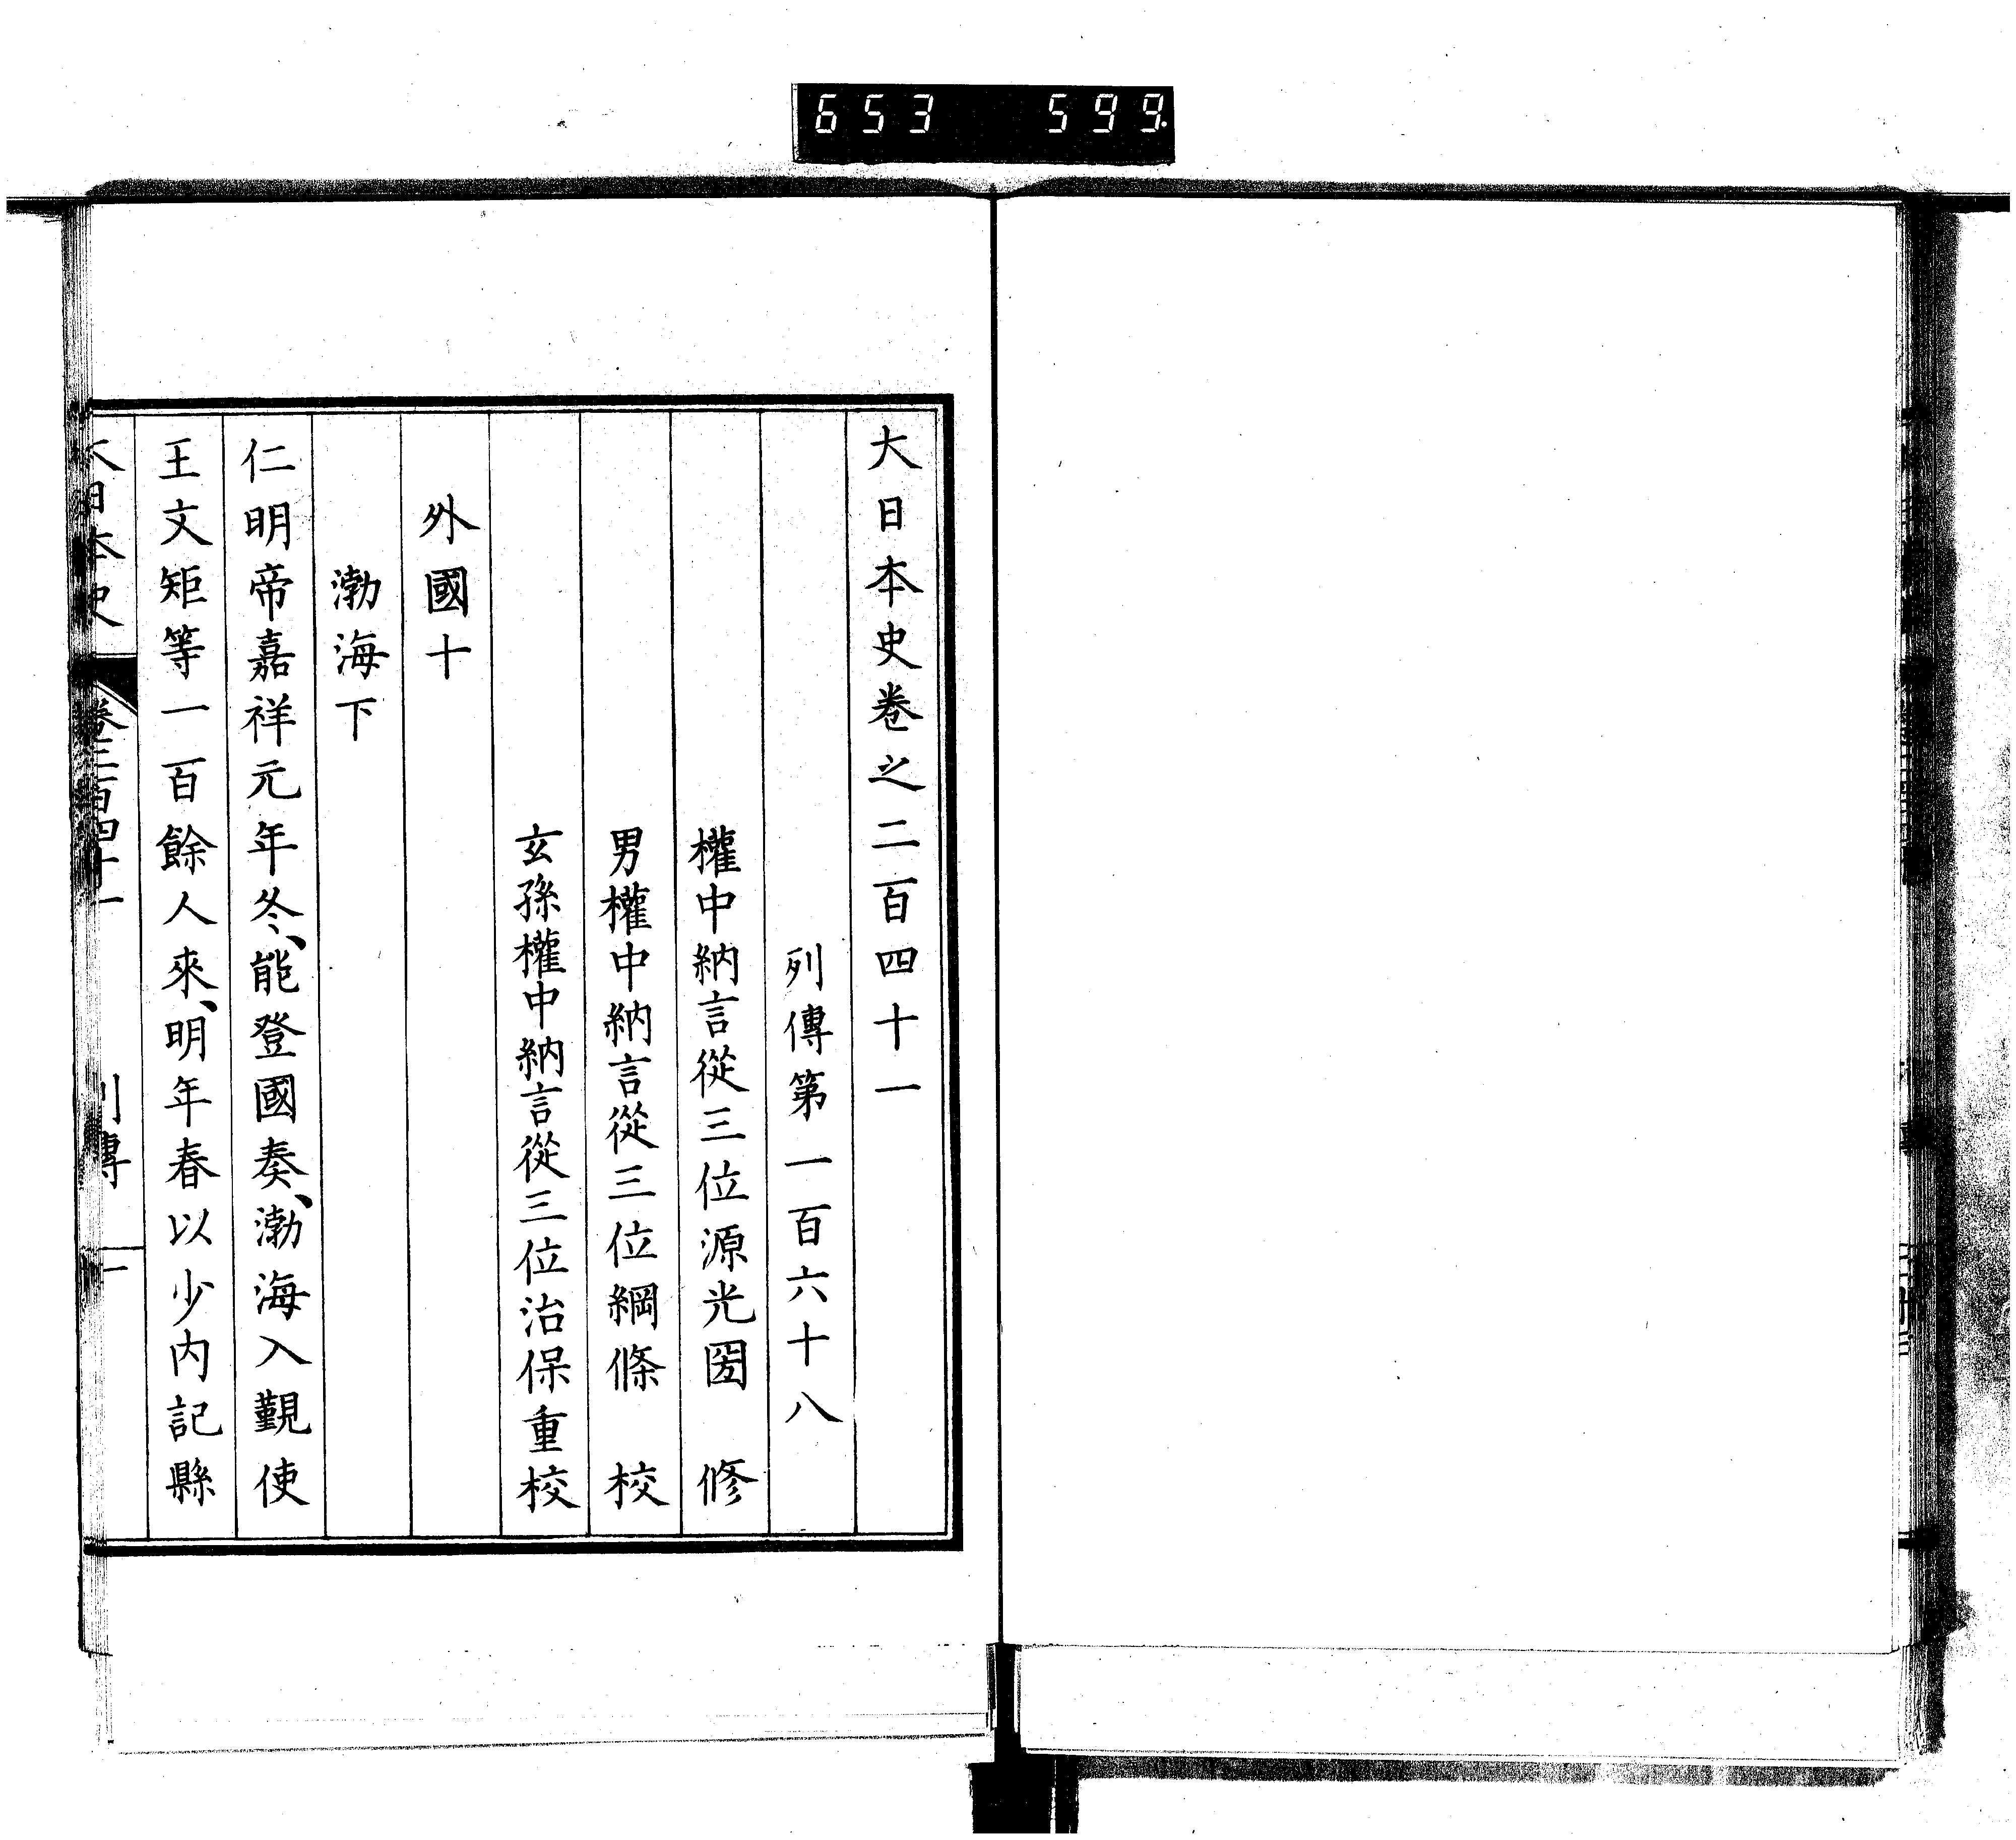 653 599.
大日本史卷之二百四十一
列傳第一百六十八
權中納言從三位源光圀 修
男權中納言從三位綱條 校
玄孫權中納言從三位治保重校
外國十
渤海下
仁明帝嘉祥元年冬、能登國奏、渤海入覲使
王文矩等一百餘人來、明年春以少內記縣
大日本史 卷二百四十一 列傳 一